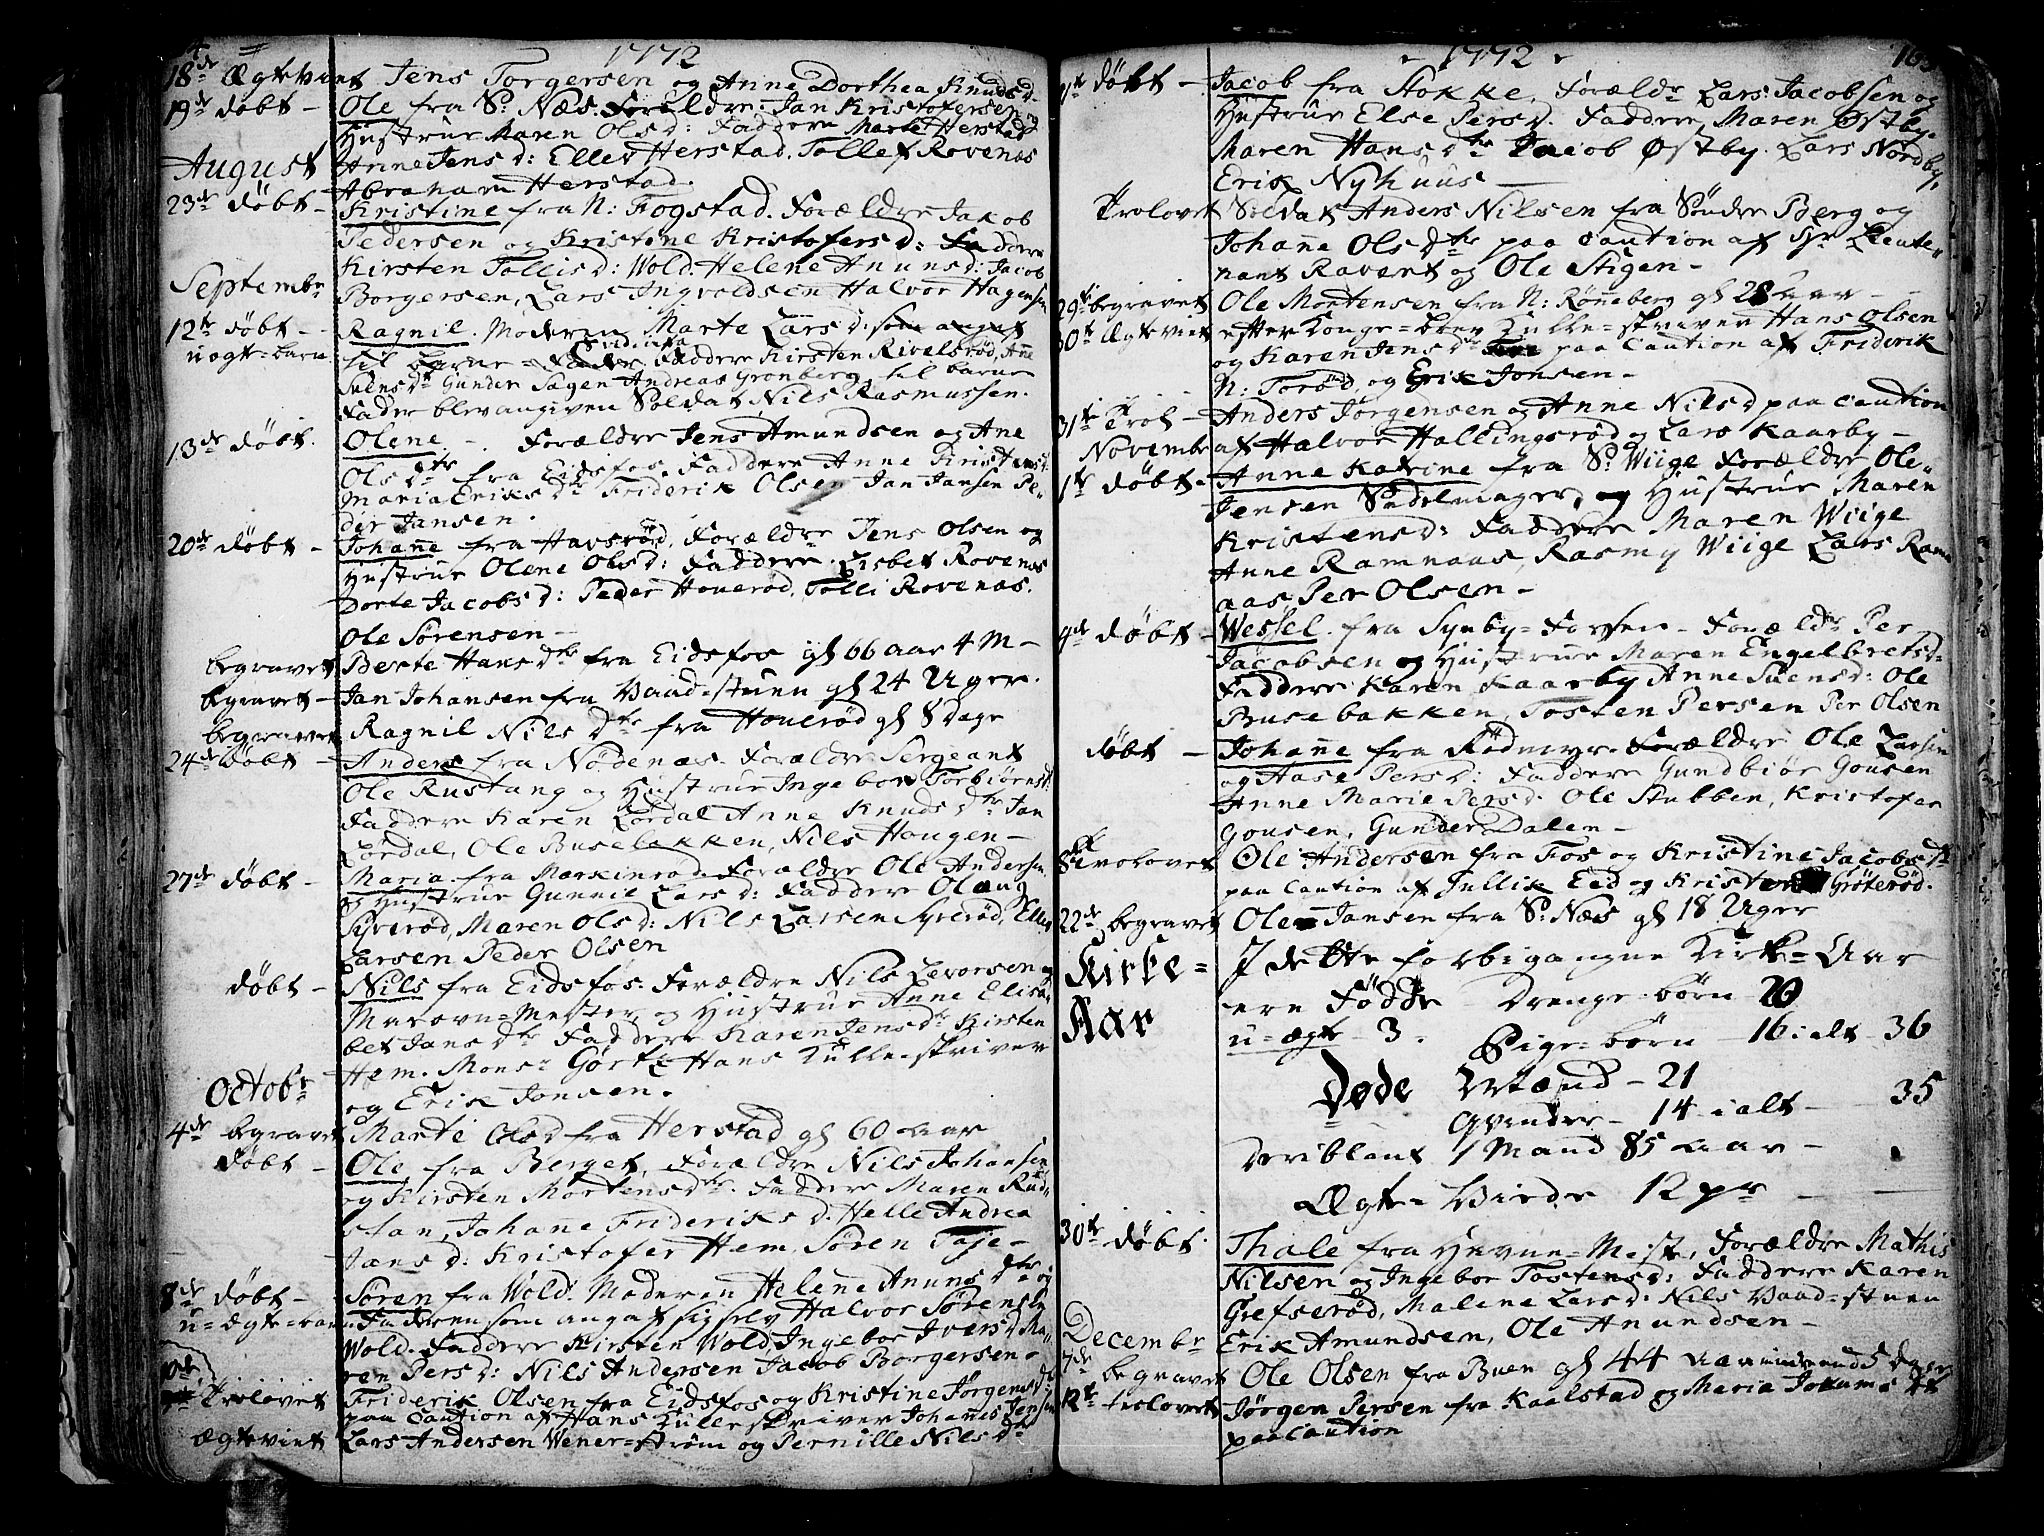 1772
18de Ægteviet Jens Torgersen og Anne Dorthea Knudsd.
19de døbt - Ole fra S: Næs. Forældre Jan Kristofersen og
Hustrue Maren Olsd: Faddere Marte Herstad
August Anne Jensd: Ellev Herstad. Tollef Rovenæs
Abraham Herstad.
23de døbt - Kristine fra N: Fogstad. Forældre Jakob
Pedersen og Kristine Kristofersd: Faddere
Kirsten Tollisd: Wold. Helene Anunsd: Jacob
Septembr Borgersen, Lars Ingvoldsen Halvor Hagensen
12te døbt - Ragnil. Moderen Marte Larsd: som angaf
uægt=barn til barne=Fader Faddere Kirsten Rivelsrød, Anne
Suensdtr Gunder Sagen Andreas Grønberg til barne
Fader blev angiven Soldat Nils Rasmussen.
13de døbt. Olene - Forældre Jens Amundsen og Ane
Olsdtr fra Eidsfos. Faddere Anne Kristensd:
Maria Eriksdtr Friderik Olsen Jan Jansen Pe-
der Jansen.
20de døbt - Johanne fra Havsrød, Forældre Jens Olsen og
Hustrue Olene Olsd: Faddere Lisbet Rovenæs
Dorte Jacobsd: Peder Houerød. Tolli Rovenæs.
Ole Sørensen -
begravet Berte Hansdtr fra Eidsfos gl 66 aar 4 M -
begravet - Jan Johansen fra Vaadstuen gl 24 Uger.
begravet Ragnil Nilsdtr fra Houerød gl 8 Dage
24de Døbt - Anders fra Nødenæs. Forældre Sergeant
Ole Rustang og Hustrue Ingebor Torbiørnsd:
Faddere Karen Lørdal Anne Knudsdtr Jan
Lørdal, Ole Busebakken, Nils Hougen -
27de døbt - Maria fra Markinrød. Forældre Ole Andersen
og Hustrue Gunnil Larsd: Faddere Olaug
Syrerød, Maren Olsd: Nils Larsen Syrerød, Ellev
Larsen Peder Olsen
døbt - Nils fra Eidsfos Forældre Nils Levorsen
Masovn=Mester, og Hustrue Anne Elisa-
bet Jansdtr Faddere Karen Jensdtr Kirsten
Hem. Monsr Gørtz Hans Hulle-skriver
Octobr og Erik Jonsen.
4de begravet Marte Olsd fra Herstad gl 60 aar
døbt - Ole fra Berget, Forældre Nils Johansen
og Kirsten Mortensdtr. Faddere Maren
Johanne Friderichsd. Helle Andrea
Jansd: Kristofer Hem, Søren Taje-
8de døbt - Søren fra Wold: Moderen Helene Anunsdtr og
u=ægte=barn Faderen som angaf sig selv Halvor Sørensen
Wold. Faddere Kirsten Wold, Ingebor Iversd Ma-
ren Persd: Nils Andersen Jacob Borgersen.
10de Trolovet Friderik Olsen fra Eidsfos og Kristine Jørgensd
paa Caution af Hans Hulleskriver Johannes Jensen
Ægteviet Lars Andersen Wener=strøm og Pernille Nilsdtr
1772
døbt - Jacob fra Stokke, Forældr Lars Jacobsen og
Hustrue Else Persd. Faddere, Maren Østby.
Maren Hansdtr Jacob Østby. Lars Nordby,
Erik Nyhuus
Trolovet Soldat Anders Nilsen fra Søndre Berg og
Johanne Olsdtr paa Caution af Hr Lieute-
nant Ravert og Ole Stigen -
29de begravet Ole Mortensen fra N: Rønneberg gl 28 aar -
30te Ægteviet efter Konge=brev Hulle=skriver Hans Olsen
og Karen Jensdtr paa Caution af Friderik
N: Torød, og Erik Jonsen -
31te Trol - Anders Jørgensen og Anne Nilsd paa Caution
Novembr af Halvor Hallingsrød og Lars Kaarby -
1te døbt - Anne Katrine fra S: Wiige Forældre Ole
Jensen Sadelmager, og Hustrue Maren
Kristensd: Faddere Maren Wiige
Anne Ramnaas, Rasmus Wiige Lars Ramn
aas Per Olsen -
9de døbt - Wessel. fra Synby=Forsen - Forældr Per
Jacobsen og Hustrue Maren Engelbretsd:
Faddere Karen Kaarby Anne Suensd: Ole
Busebakken, Tosten Persen Per Olsen
døbt - Johanne fra Rødmyr. Forældre Ole Larsen
og Aase Persd: Faddere Gundbiør Gousen
Anne Marie Persd. Ole Stubben, Kristofer
Gousen, Gunder Dalen -
8te Trolovet Ole Andersen fra Fos og Kristine Jacobsdtr
paa Caution af Jullik Eid og Kristen Grøterød.
22de begravet Ole Jansen fra S: Næs gl 18 Uger
Kirke= I dette forbigangne Kirke=Aar
Aar ere Fødde Drenge-børn 20
u=ægte 3. Pige=børn 16 i alt - 36
Døde Mænd - 21
Qvinder - 14 i alt - 35
Deriblant 1 Mand 85 aar -
Ægte=Viede 12 pr -
30te døbt. Thale fra Hevne=Mest, Forældre Mathis
Nilsen og Ingebor Tostensd: Faddere Karen
Grefserød, Malene Larsd. Nils Vaad=stuen
Erik Amundsen, Ole Anundsen -
Decembr
7de begravet Ole Olsen fra Buen gl 44 aar 5 dage
12te trolovet Jørgen Persen fra Kaalstad og Maria
paa Caution